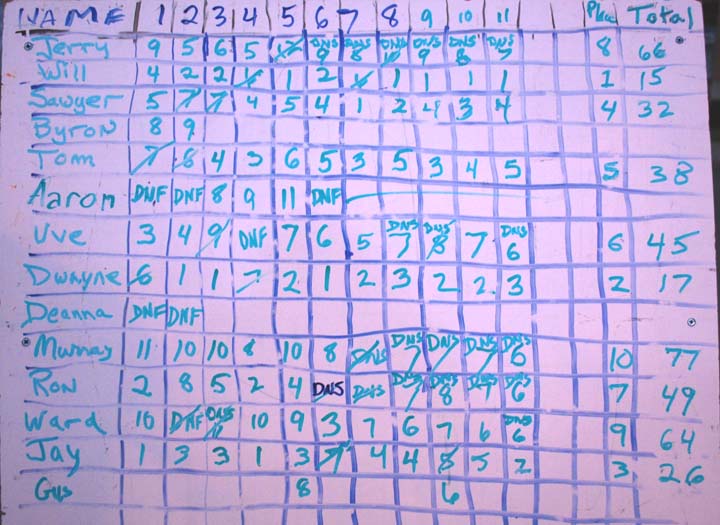 NAME 1 2 3 4 5 6 7 8 9 10 11 Place Total
Jerry 9 5 6 5 12 DNS 9 DNS 8 DNS 10 DNS 9 DNS 8 DNS 7 8 66
Will 4 2 2 4 1 2 1 1 1 1 1 15
Sawyer 5 7 7 4 5 4 1 2 4 3 4 4 32
Byron 8 9
Tom 7 8 4 3 6 5 3 5 3 4 5 5 38
Aaron DNF DNF 8 9 11 DNF
Uve 3 4 9 DNF 7 6 5 DNS 7 DNS 8 7 DNS 6 6 45
Dwayne 6 1 1 7 2 1 2 3 2 2 3 2 17
Deanna DNF DNF
Murray 11 10 10 8 10 8 DNS DNS 7 DNS DNS 7 DNS 6 10 77
Ron 2 8 5 2 4 DNS DNS DNS 7 DNS 8 DNS 7 DNS 6 7 49
Ward 10 DNF DNS 11 10 9 3 7 6 7 6 DNS 6 9 64
Jay 1 3 3 1 3 7 4 4 8 5 2 3 26
Gus 8 6